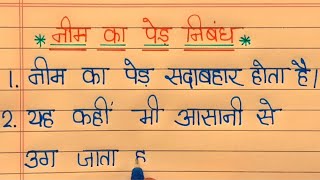 * नीम का पेड़ निबंध *
1. नीम का पेड़ सदाबहार होता है।
2. यह कहीं भी आसानी से
उग जाता ह